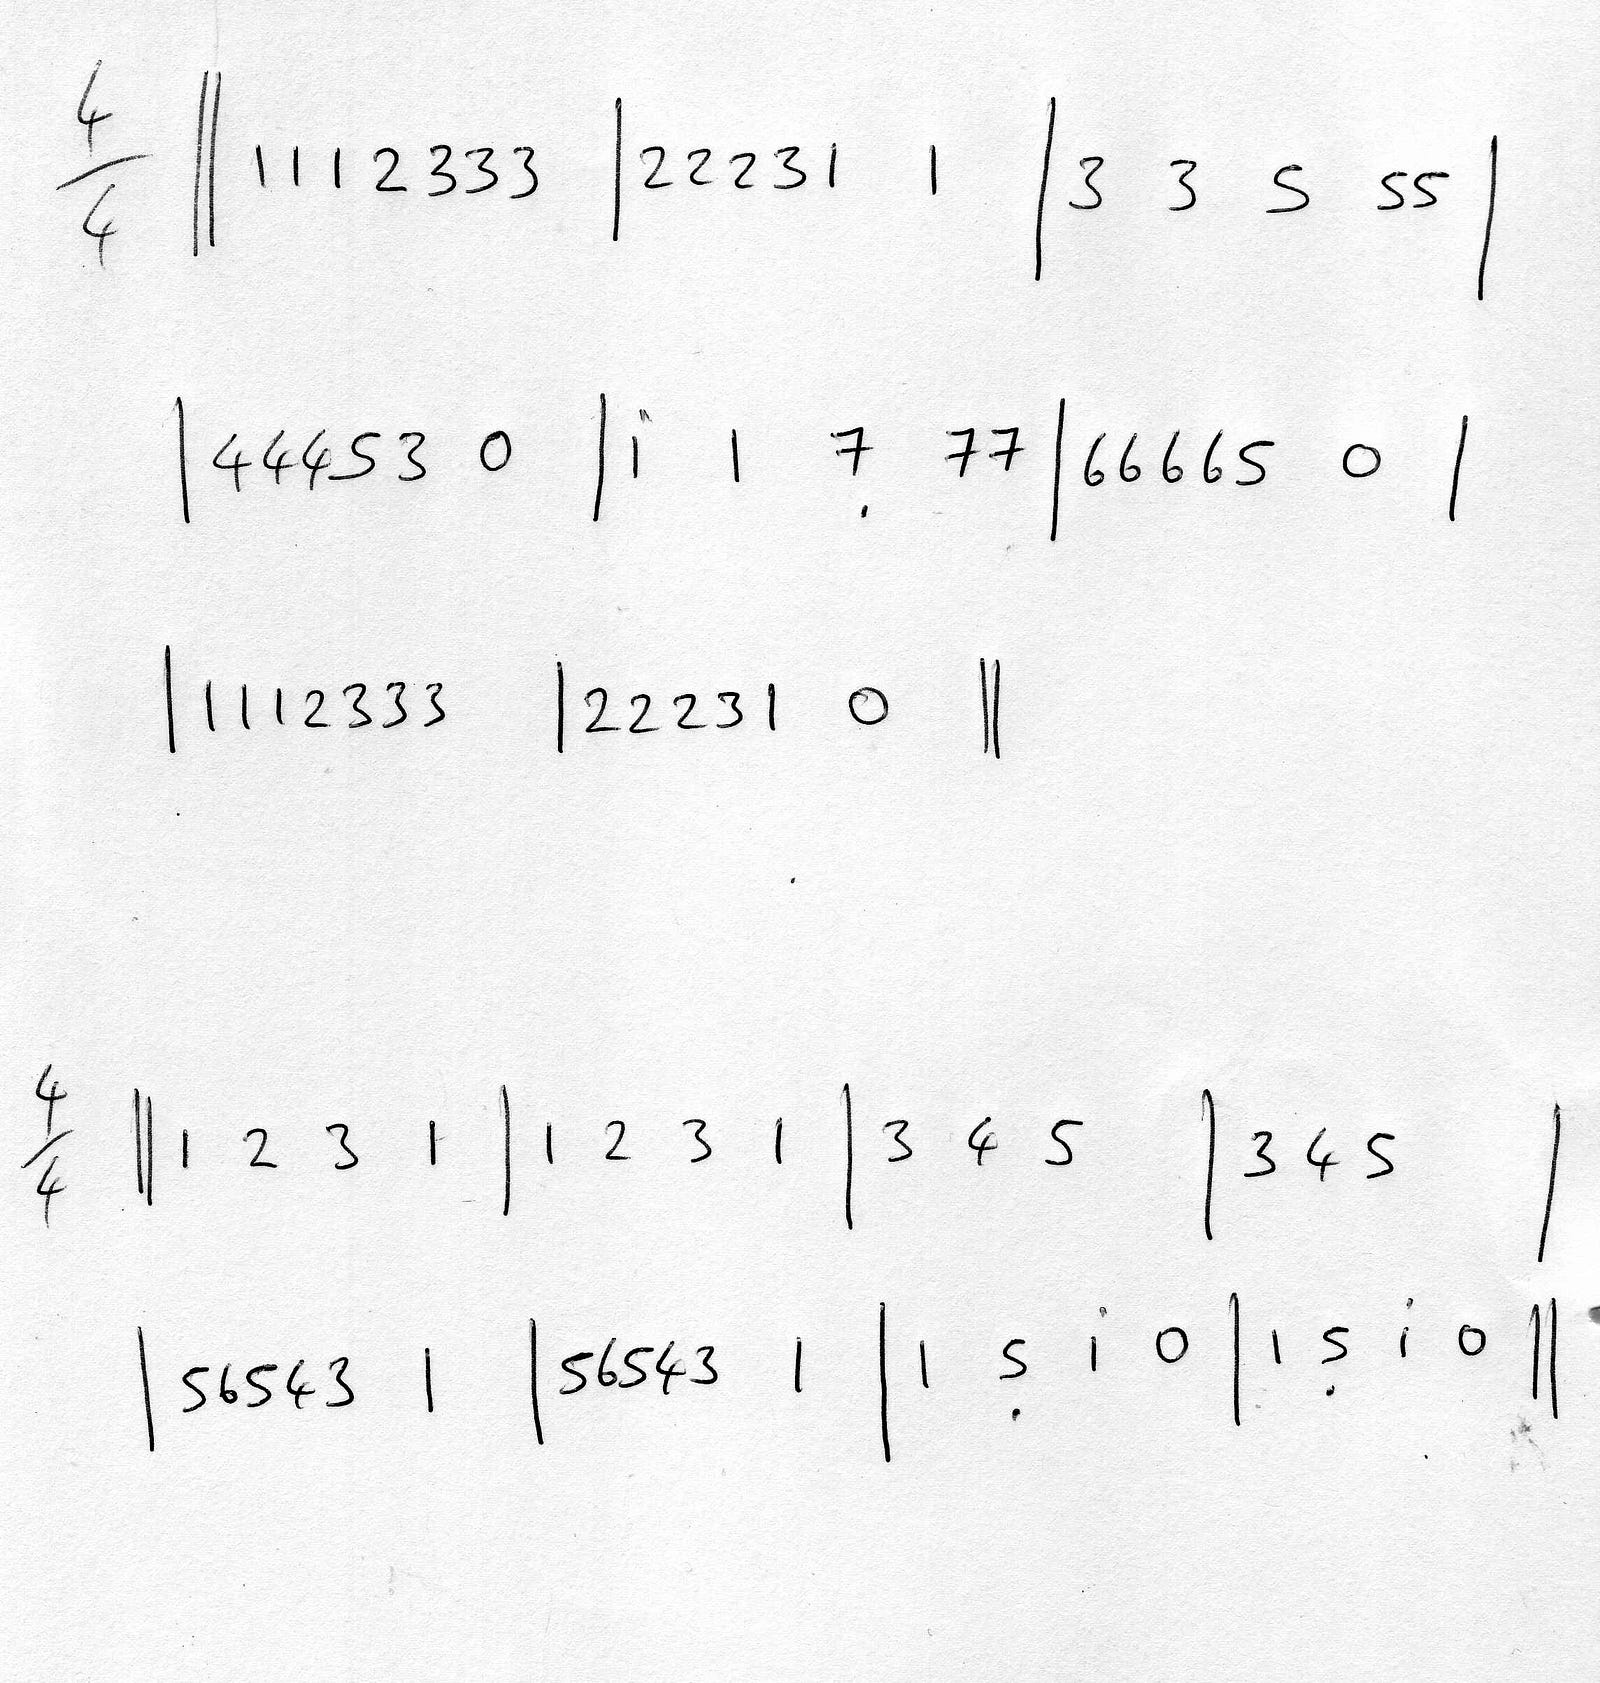 4/4 || 1 1 1 2 3 3 3 | 2 2 2 3 1 1 | 3 3 5 55 |
| 4 4 4 5 3 0 | i 1 7̣ 77 | 6 6 6 6 5 0 |
| 1 1 1 2 3 3 3 | 2 2 2 3 1 0 ||
4/4 || 1 2 3 1 | 1 2 3 1 | 3 4 5 | 3 4 5 |
| 5 6 5 4 3 1 | 5 6 5 4 3 1 | 1 5̣ i 0 | 1 5̣ i 0 ||